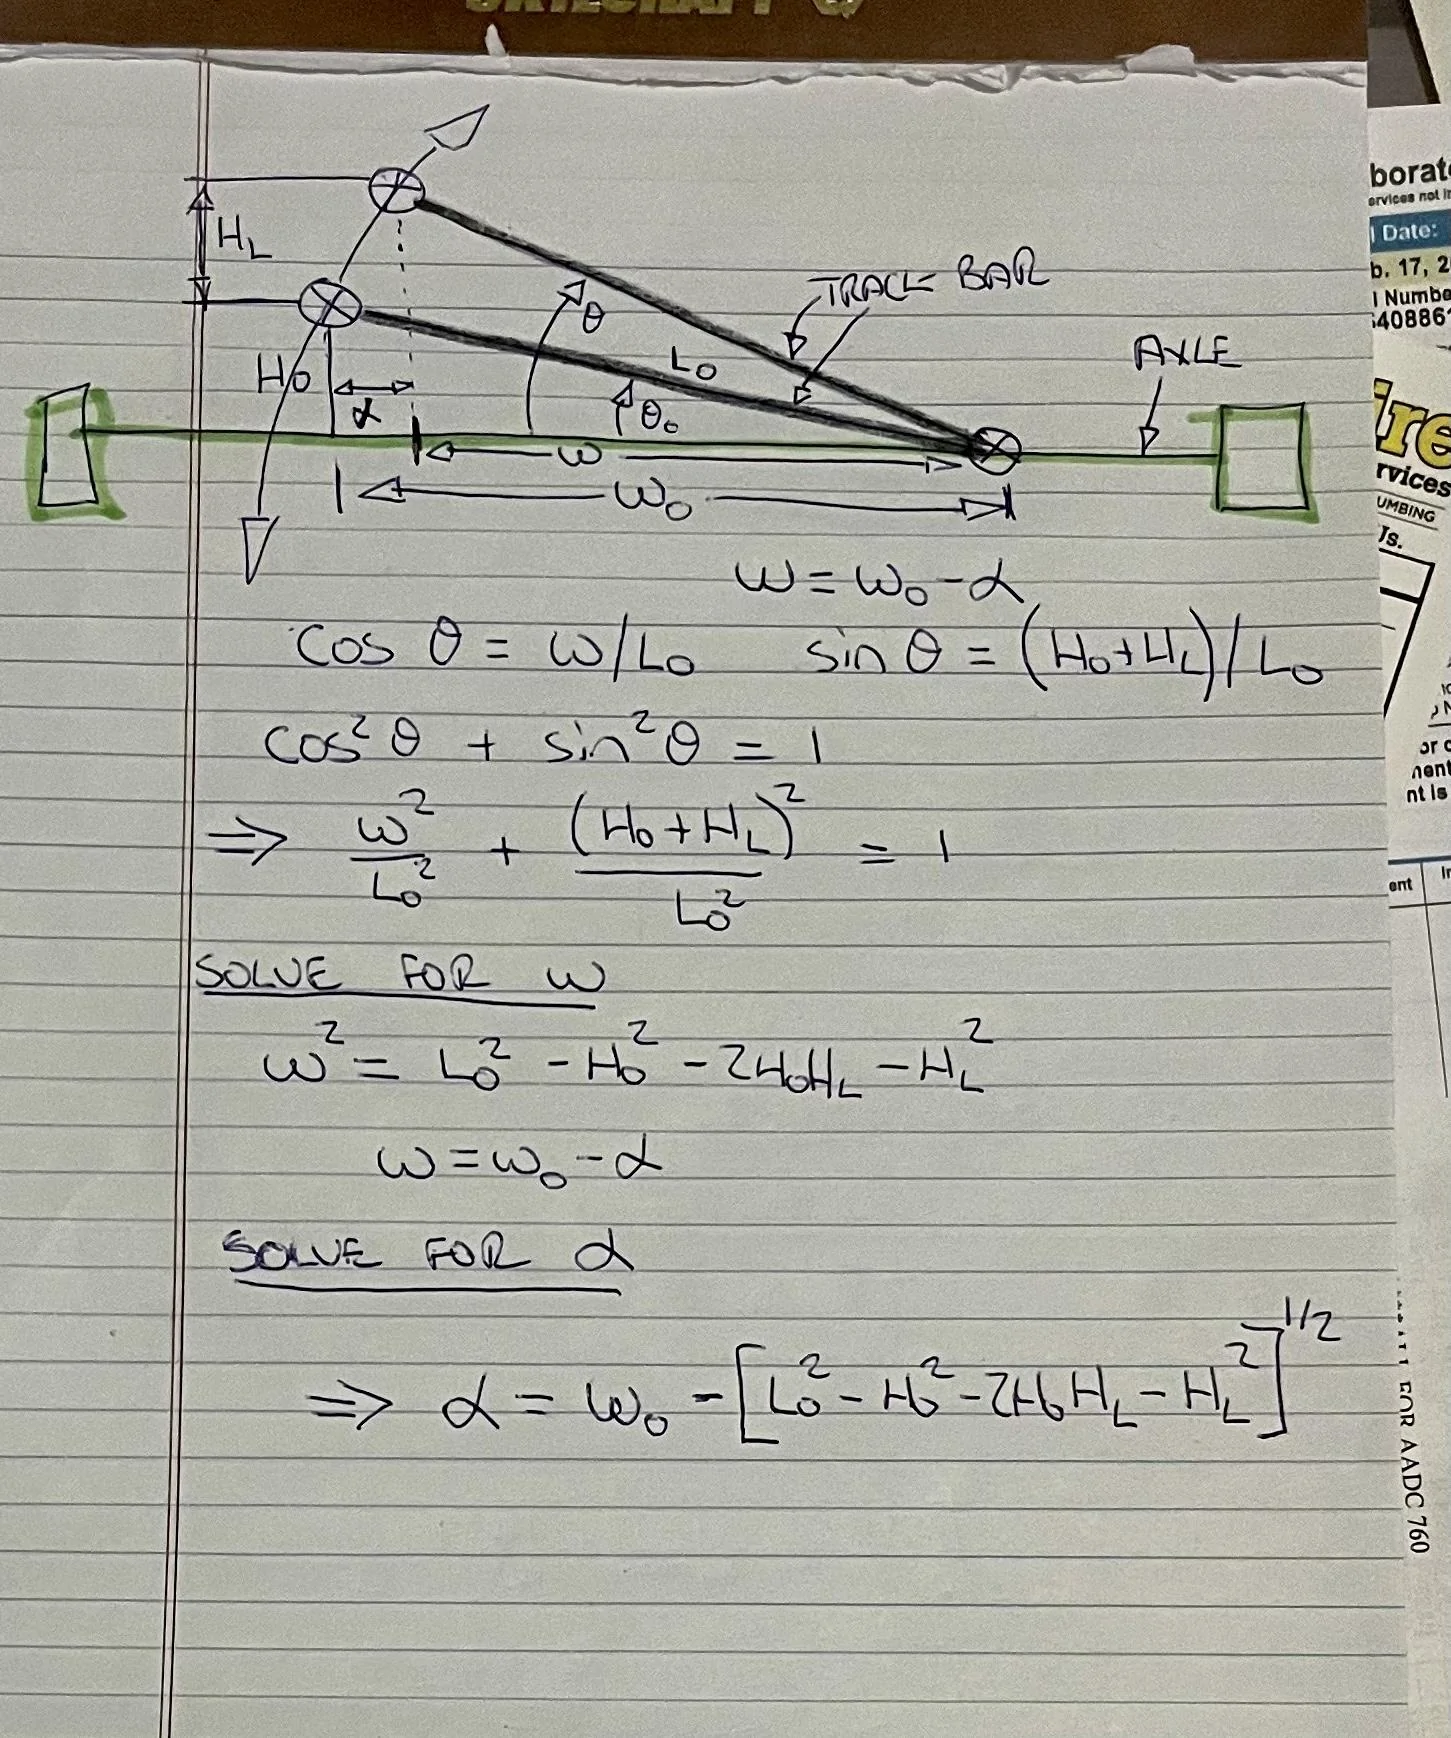 H_L
θ
TRACK BAR
H_0
L_0
AXLE
α
θ_0
ω
ω_0
ω = ω_0 - α
cos θ = ω/L_0 sin θ = (H_0+H_L)/L_0
cos² θ + sin² θ = 1
⇒ ω²/L_0² + (H_0+H_L)²/L_0² = 1
SOLVE FOR ω
ω² = L_0² - H_0² - 2H_0H_L - H_L²
ω = ω_0 - α
SOLVE FOR α
⇒ α = ω_0 - [L_0² - H_0² - 2H_0H_L - H_L²]^1/2
borat
ervices not i
Date:
b. 17, 2
Numbe
40886
ire
rvices
UMBING
Js.
or c
nent
nt is
ent
FOR AADC 760